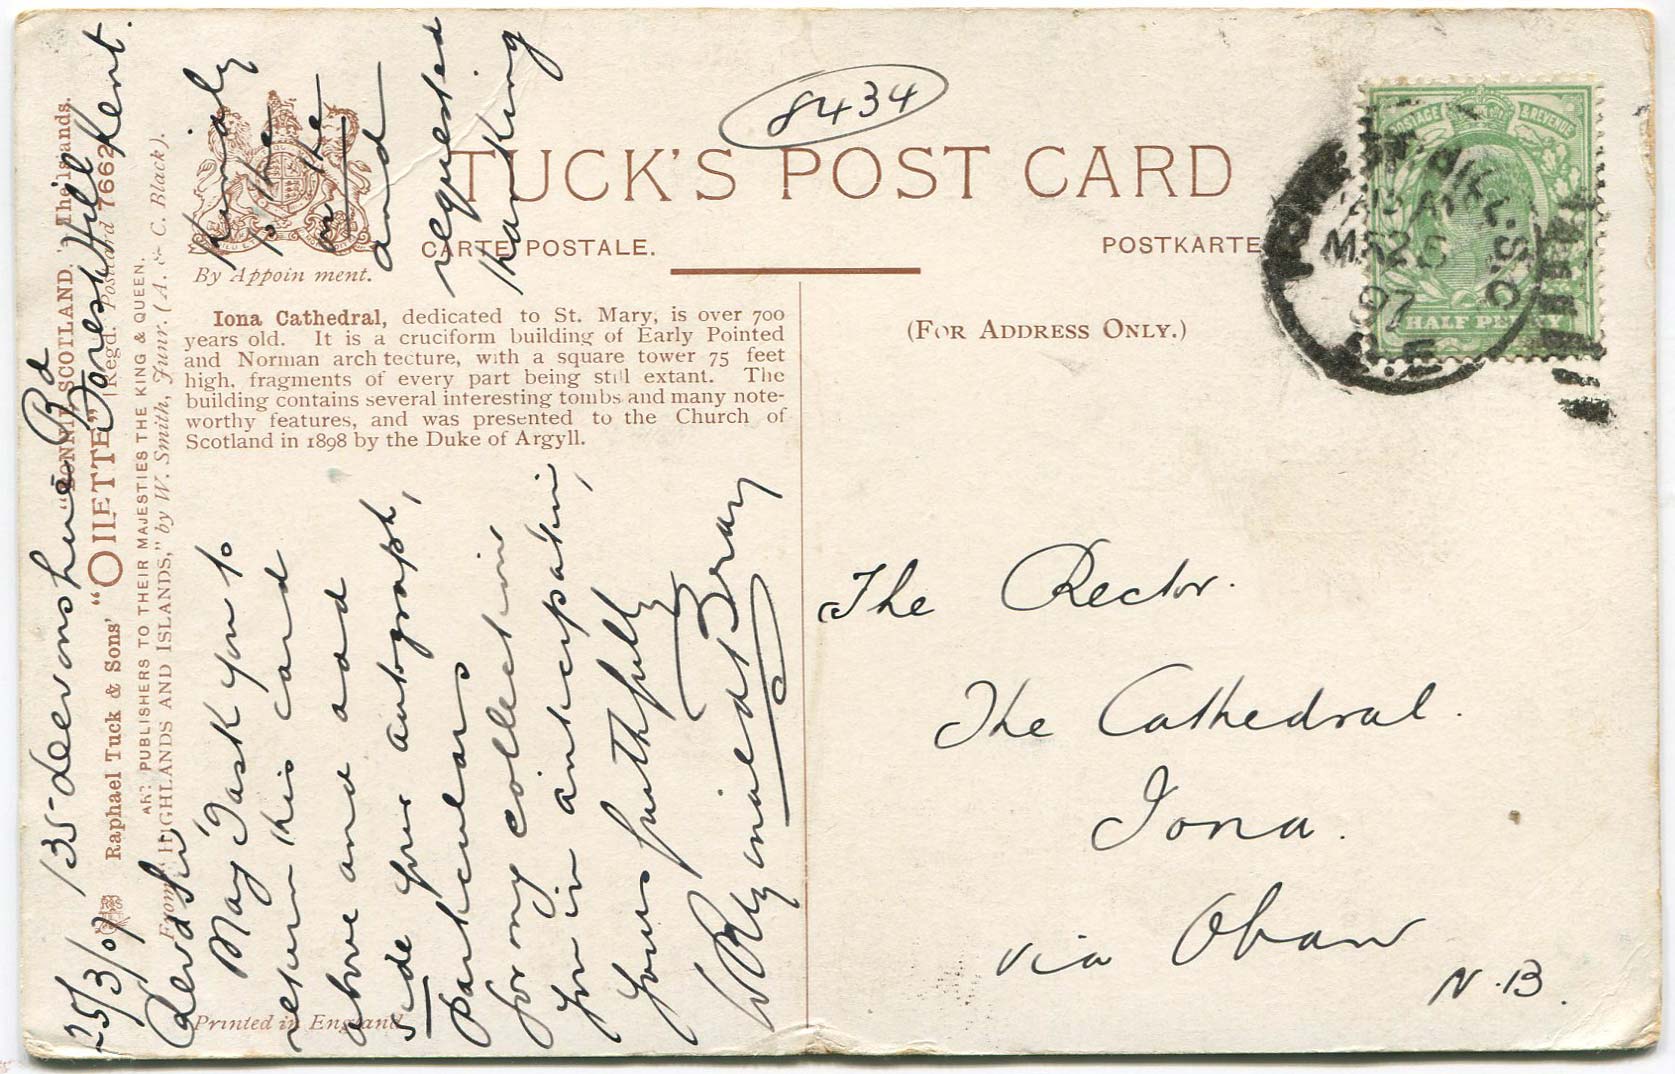 8434
TUCK'S POST CARD
CARTE POSTALE.
POSTKARTE
By Appointment.
(FOR ADDRESS ONLY.)
POSTAGE & REVENUE
HALF PENNY
MR 25
07
S.E
Iona Cathedral, dedicated to St. Mary, is over 700
years old. It is a cruciform building of Early Pointed
and Norman arch tecture, with a square tower 75 feet
high, fragments of every part being still extant. The
building contains several interesting tombs and many note-
worthy features, and was presented to the Church of
Scotland in 1898 by the Duke of Argyll.
"BONNIE SCOTLAND." The Islands.
Raphael Tuck & Sons' "OILETTE" [Regd.] Postcard 7662
ART PUBLISHERS TO THEIR MAJESTIES THE KING & QUEEN.
From "HIGHLANDS AND ISLANDS," by W. Smith, Junr. (A. & C. Black).
Printed in England
25/3/07 135 devonshire Rd
Forest Hill Kent.
Revd Sir,
May I ask you to kindly
return this card to the
above and add on the
side your autograph, and
particulars requested
for my collection thanking
you in anticipation,
yours faithfully
Reginald Bray
The Rector.
The Cathedral.
Iona.
via Oban
N.B.